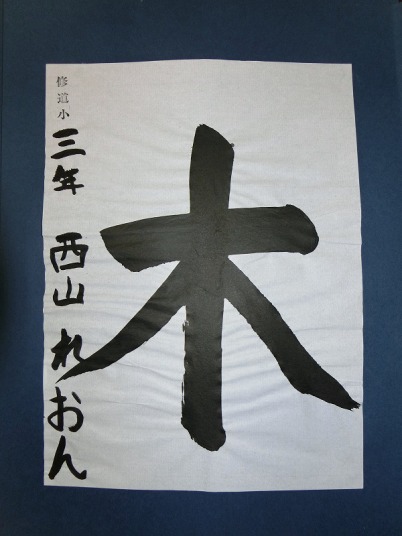 木
修道小
三年 西山れおん